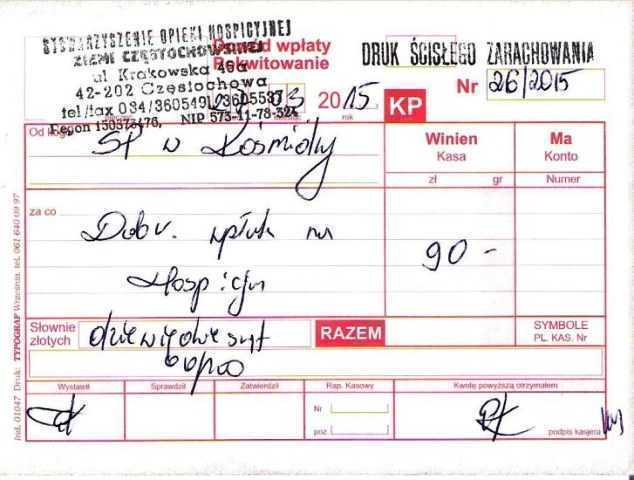 STOWARZYSZENIE OPIEKI HOSPICYJNEJ
ZIEMI CZĘSTOCHOWSKIEJ
ul Krakowska 45a
42-202 Częstochowa
tel/fax 034/3605491, 3605537
Regon 150373476, NIP 573-11-73-324
Dowód wpłaty
Pokwitowanie
DRUK ŚCISŁEGO ZARACHOWANIA
Nr 26/2015
03 2015
rok
KP
Od kogo SP w
Winien
Kasa
zł gr
Ma
Konto
Numer
za co Dobr. wpłata na
Hospicjum
90 -
Słownie
złotych dziewięćdziesiąt
00/100
RAZEM
SYMBOLE
PL. KAS. Nr
Wystawił Sprawdził Zatwierdził Rap. Kasowy Kwotę powyższą otrzymałem
Nr
poz
podpis kasjera
Ind. 01047 Druk: TYPOGRAF Września, tel. 061 640 09 97